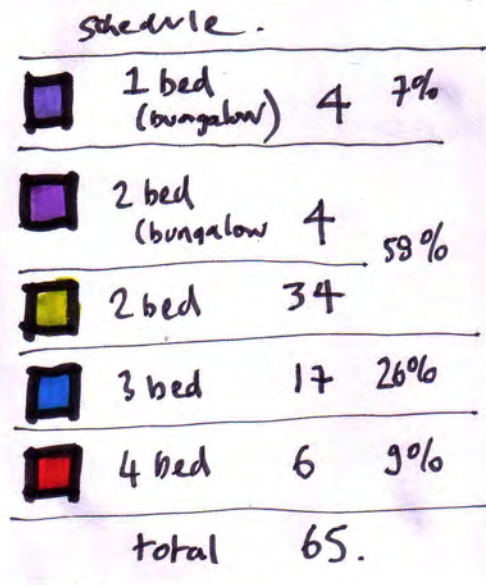 schedule.
1 bed
(bungalow) 4 7%
2 bed
(bungalow 4
58%
2 bed 34
3 bed 17 26%
4 bed 6 9%
total 65.